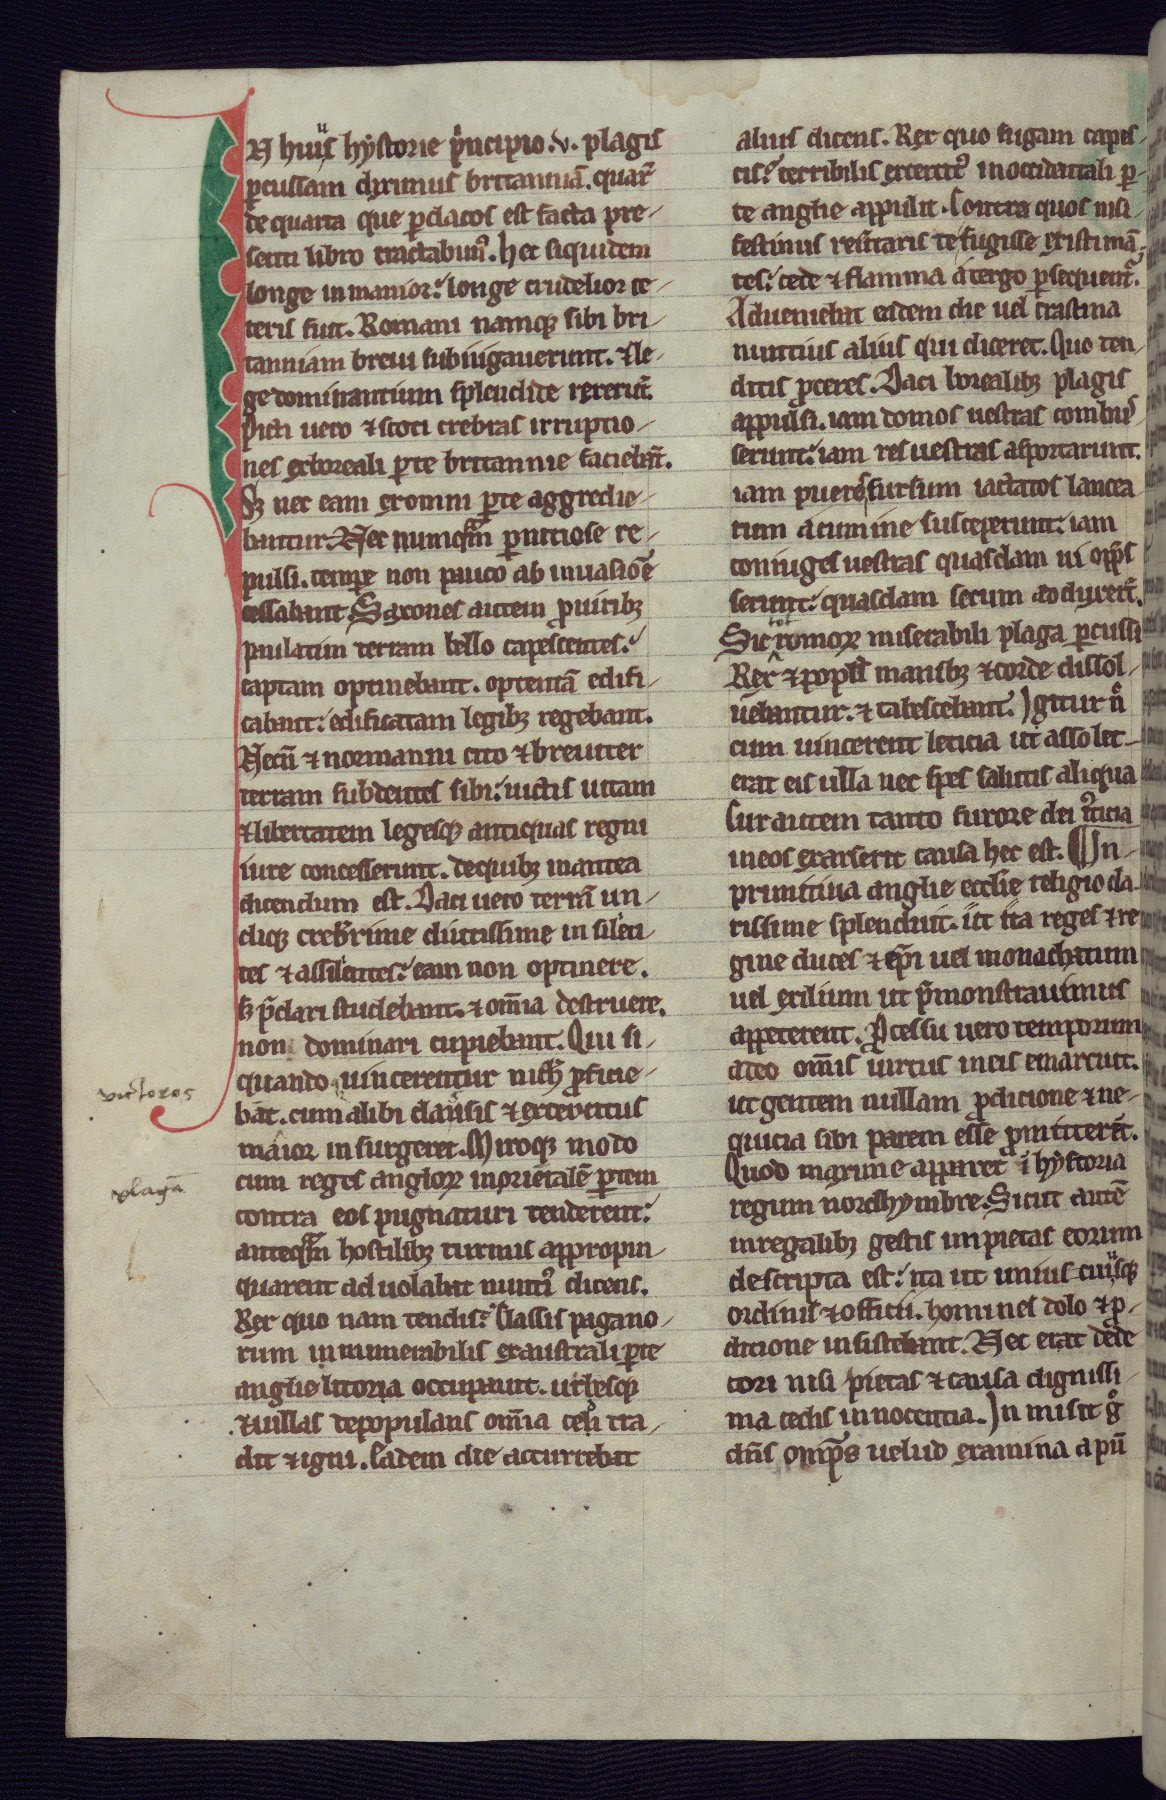 IN huius hystorie p'ncipio .v. plagis
p̱cussam diximus britanniā. quaꝝ̄
de quarta que p̱ dacos est facta pre-
senti libro tractabimꝰ. Hec siquidem
longe inmanior: longe crudelior ce-
teris fuit. Romani namqꝫ sibi bri-
tanniam breui subiugauerunt. ⁊ le-
ge dominantium splendide rexerūt.
Picti uero ⁊ scoti crebras irruptio-
nes exboreali p̱te britannie faciebāt.
Sꝫ nec eam exomni p̱te aggredie-
bantur. Nec numqͣm p̱nitiose re-
pulsi. tempe non pauco ab inuasiōe
cessabant. Saxones autem p̱ uiribꝫ
paulatim terram bello capescentes:
captam optinebant. optentā edifi-
cabant: edificatam legibꝫ regebant.
Necū ⁊ normanni cito ⁊ breuiter
terram subdentes sibi: uictis uitam
⁊ libertatem legesqꝫ antiquas regni
iure concesserunt. dequibꝫ inantea
dicendum est. Daci uero terrā un-
diqꝫ creberrime diutissime insilien-
tes ⁊ assilientes: eam non optinere.
sꝫ p̄dari studebant. ⁊ om̄ia destruere.
non dominari cupiebant. Qui si
quando uincerentur nich̄ p̱ficie-
bāt. cum alibi classis ⁊ exercitus
maior insurgeret. Miroqꝫ modo
cum reges angloꝝ inorientalē p̱tem
contra eos pugnaturi tenderent:
anteqͣm hostilibꝫ turmis appropin-
quarent aduolabat nuntꝰ dicens.
Rex quo nam tendis? Classis pagano-
rum innumerabilis exaustrali p̱te
anglie litoria occupauit. urbesqꝫ
⁊ uillas depopulans om̄ia cedi tra-
dit ⁊ igni. Eadem die accurrebat
victores
plagā
alius dicens. Rex quo fugam capes-
cis? terribilis exercitꝰ inoccidentali p̱-
te anglie appulit. Contra quos nisi
festinus restitaris te fugisse existimā-
tes: cede ⁊ flamma a tergo p̱sequentᷣ.
Adueniebat eadem die uel crastina
nuntius alius qui diceret. Quo ten-
ditis p̱ceres. Daci borealibꝫ plagis
appulsi. iam domos uestras combus-
serunt: iam res uestras asportarunt.
iam pueros sursum iactatos lancea-
rum acumine susceperunt: iam
coniuges uestras quasdam ui opp̄s-
serunt: quasdam secum adduxerūt.
Sic tot rumoꝝ miserabili plaga p̱cussi
Rex ⁊ popł̄s manibꝫ ⁊ corde dissol-
uebantur. ⁊ tabescebant. Igitur nͦ
cum uincerent leticia ut assolet
erat eis ulla nec spes salutis aliqua
Cur autem tanto furore dei iͣticia
ineos exarserit causa hec est. ¶ In
primitiua anglie ecclīe religio cla-
rissime splenduit. ut ita reges ⁊ re-
gine duces ⁊ ep̄i uel monachatum
uel exilium ut p̄monstrauimus
appeterent. P̱cessu uero temporum
adeo om̄is uirtus ineis emarcuit.
ut gentem nullam p̱dicione ⁊ ne-
quicia sibi parem esse p̱mitterēt.
Quod maxime apparet ī hystoria
regum nordhymbre. Sicut autē
inregalibꝫ gestis impietas eorum
descripta est: ita ut unius cuiusqꝫ
ordinis ⁊ officii. homines dolo ⁊ p̱-
ditione insistebant. Nec erat dede-
cori nisi pietas ⁊ causa dignissi-
ma cedis innocentia. Inmisit gͦ
dn̄s omp̄s uelud examina apū